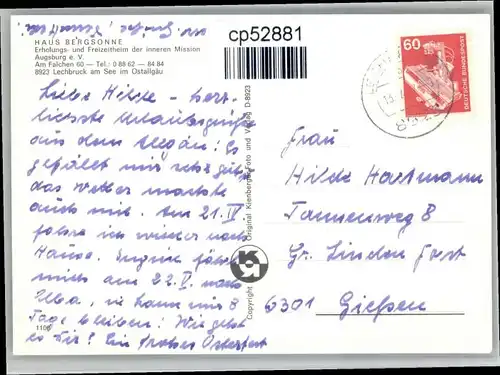 HAUS BERGSONNE
Erholungs- und Freizeitheim der inneren Mission
Augsburg e. V.
Am Falchen 60 — Tel.: 0 88 62 — 84 84
8923 Lechbruck am See im Ostallgäu
cp52881
60
DEUTSCHE BUNDESPOST
Liebe Hilde - herz-
lichste Urlaubsgrüße
aus dem Allgäu! Es
gefällt mir sehr gut,
das Wetter machte
auch mit. Am 21. IV.
fahre ich wieder nach
Hause.
mich am 22. V. nach
8
Tage bleiben! Wie geht
es Dir? Ein frohes Osterfest
1106
Copyright
Original Kienberger Foto und Verlag D-8923
Frau
Hilde Hartmann
Tannenweg 8
Gr. Linden Forst
6301 Gießen